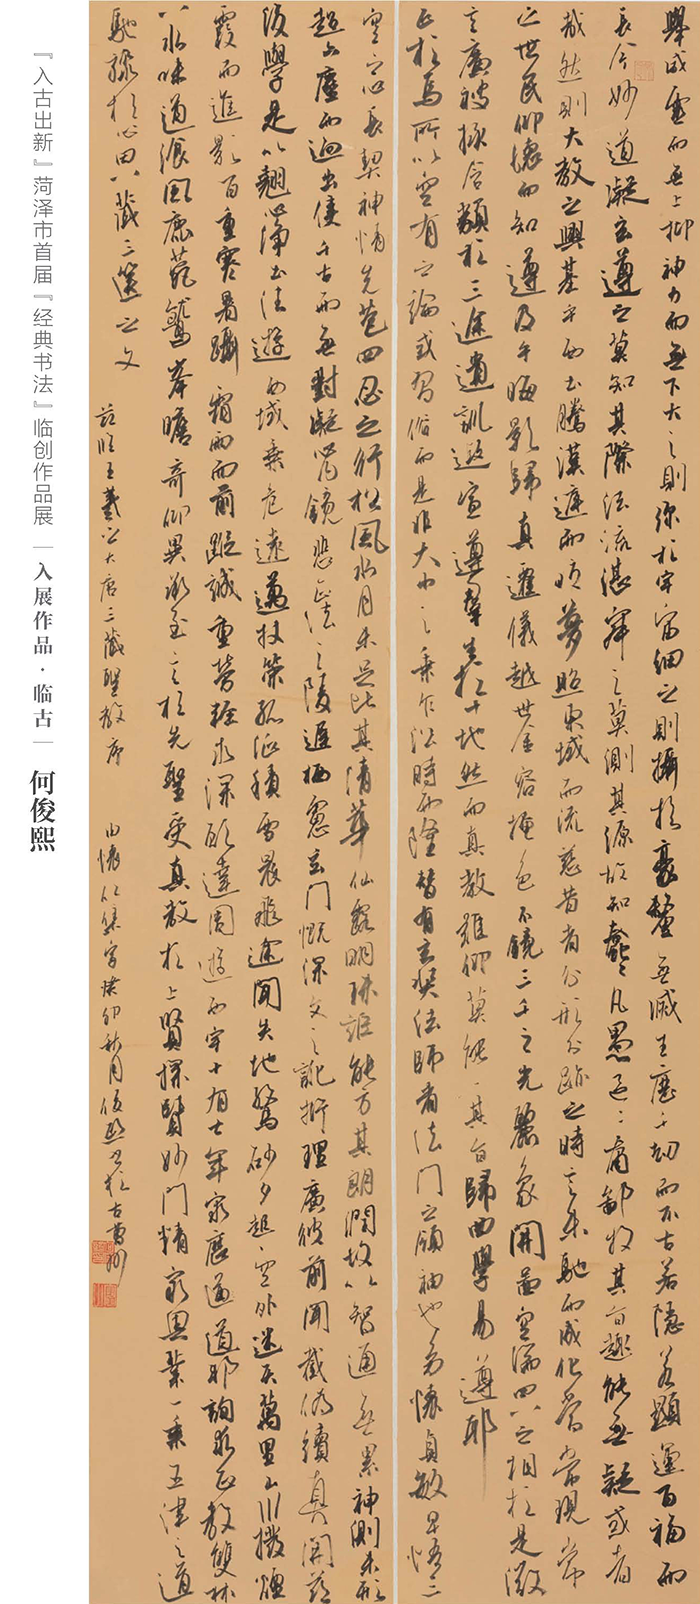 『入古出新』菏泽市首届『经典书法』临创作品展 | 入展作品·临古 | 何俊熙
舉威靈而無上抑神力而無下大之則弥於宇宙細之則攝於豪釐無滅生歷千劫而不古若隱若顯運百福而
長今妙道凝玄遵之莫知其際法流湛寂之莫測其源故知蠢蠢凡愚區區庸鄙投其旨趣能無疑惑者
哉然則大教之興基乎西土騰漢庭而皎夢照東域而流慈昔者分形分跡之時言未馳而成化當常現常
之世民仰德而知遵及乎晦影歸真遷儀越世金容掩色不鏡三千之光麗象開圖空端四八之相於是微
言廣被拯含類於三途遺訓遐宣導群生於十地然而真教難仰莫能一其旨歸曲學易遵邪
正於焉所以空有之論或習俗而是非大小之乘乍沿時而隆替有玄奘法師者法門之領袖也幼懷貞敏早悟三
空之心長契神情先苞四忍之行松風水月未足比其清華仙露明珠詎能方其朗潤故以智通無累神測未形
超六塵而迥出隻千古而無對凝心內境悲正法之陵遲栖慮玄門慨深文之訛析理廣彼前聞截偽續真開茲
後學是以翹心淨土法遊西域乘危遠邁杖策孤征積雪晨飛途間失地驚砂夕起空外迷天萬里山川撥煙
霞而進影百重寒暑躡霜雨而前蹤誠重勞輕求深願達周遊西宇十有七年窮歷道邦詢求正教雙林
八水味道飡風鹿菀鷲峯瞻奇仰異承至言於先聖受真教於上賢探賾妙門精窮奧業一乘五律之道
馳驟於心田八藏三篋之文
臨王羲之大唐三藏聖教序 由懷仁集字癸卯秋月俊熙書於古曹州